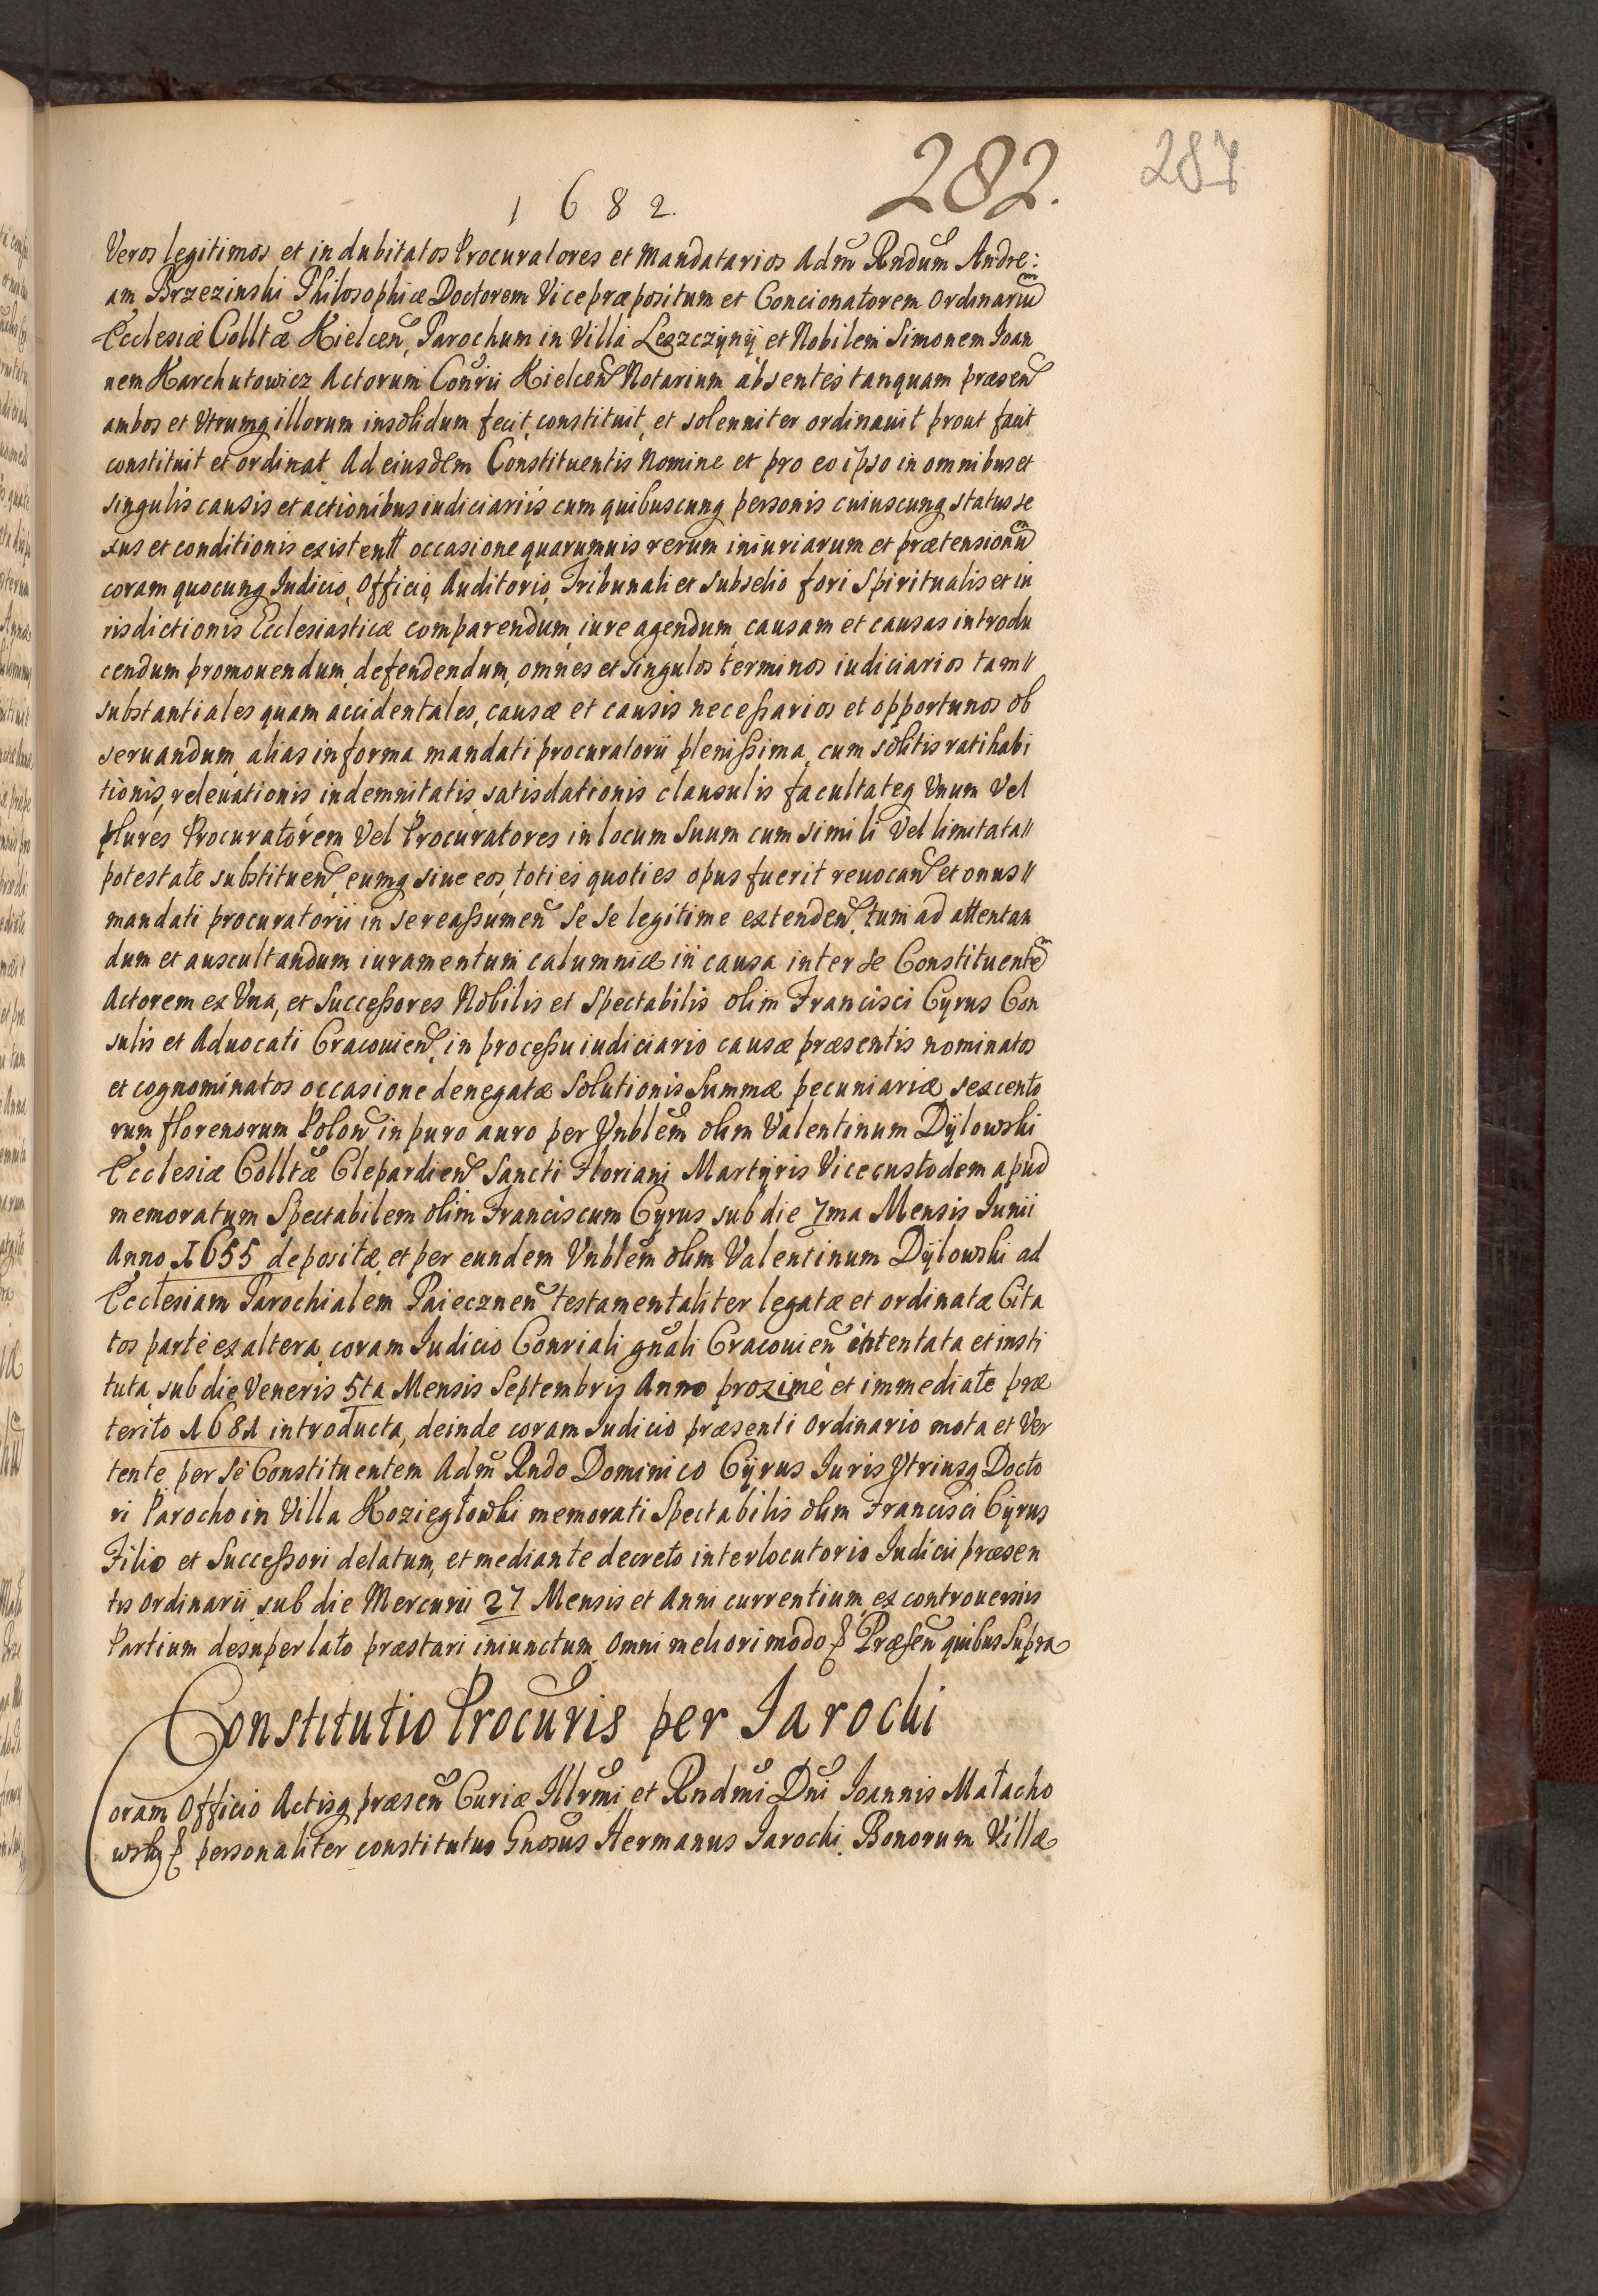 282.
287
1682.
Veros legitimos et indubitatos Procuratores et Mandatarios Adm Rndum Andre:
am Brzezinski Philosophiæ Doctorem Vicepræpositum et Concionatorem Ordinarium
Ecclesiæ Colltæ Kielcen, Parochum in Villa Leszczyny et Nobilem Simonem Ioan
nem Karchutowicz Actorum Conrii Kielcen Notarium absentes tanquam præsen
ambos et Utrumq illorum insolidum fecit, constituit, et solenniter ordinauit prout facit
constituit et ordinat, Ad eiusdem Constituentis Nomine et pro eo ipso in omnibus et
singulis causis et actionibus iudiciariis cum quibuscunq personis cuiuscunq status se
xus et conditionis existentt occasione quarumuis rerum iniuriarum et prætensionum
coram quocunq Iudicio, Officio, Auditorio, Tribunali et subselio fori Spiritualis et iu
risdictionis Ecclesiasticæ comparendum, iure agendum, causam et causas introdu
cendum promouendum, defendendum, omnes et singulos terminos iudiciarios tam
substantiales quam accidentales, causæ et causis necessarios et opportunos ob
seruandum, alias in forma mandati procuratorii plenissima, cum solitis ratihabi
tionis, releuationis indemnitatis, satisdationis clausulis facultateq Unum Vel
plures Procuratorem Vel Procuratores in locum Suum cum simili Vel limitata
potestate substituen, eumq siue eos, toties quoties opus fuerit reuocan et onus
mandati procuratorii in se reassumen se se legitime extenden, tum ad attentan
dum et auscultandum iuramentum calumniæ in causa inter se Constituentem
Actorem ex Una, et Successores Nobilis et Spectabilis olim Francisci Cyrus Con
sulis et Aduocati Cracouien, in processu iudiciario causæ præsentis nominatos
et cognominatos occasione denegatæ Solutionis Summæ pecuniariæ sexcento
rum florenorum Polon in puro auro per Vnblem olim Valentinum Dylowski
Ecclesiæ Colltæ Clepardien Sancti Floriani Martyris Vicecustodem apud
memoratum Spectabilem olim Franciscum Cyrus sub die 7ma Mensis Iunii
Anno 1655 depositæ, et per eundem Vnblem olim Valentinum Dylowski ad
Ecclesiam Parochialem Paiecznen testamentaliter legatæ et ordinatæ Cita
tos parte ex altera, coram Iudicio Conriali gnali Cracouien intentata et insti
tuta, sub die Veneris 5ta Mensis Septembris Anno proxime et immediate præ
terito 1681 introducta, deinde coram Iudicio præsenti Ordinario mota et Ver
tente, per se Constituentem Adm Rndo Dominico Cyrus Iuris Vtriusq Docto
ri Parocho in Villa Koziegłowki memorati Spectabilis olim Francisci Cyrus
Filio et Successori delatum, et mediante decreto interlocutorio Iudicii præsen
tis Ordinarii sub die Mercurii 27 Mensis et Anni currentium, ex controuersiis
Partium desuper lato præstari iniunctum, Omni meliori modo Præsen quibus Supra
Constitutio Procuris per Jarocki
Coram Officio Actisq præsen Curiæ Illrmi et Rndmi Dni Ioannis Małacho
wsky personaliter constitutus Gnosus Hermanus Jarocki, Bonorum Villæ